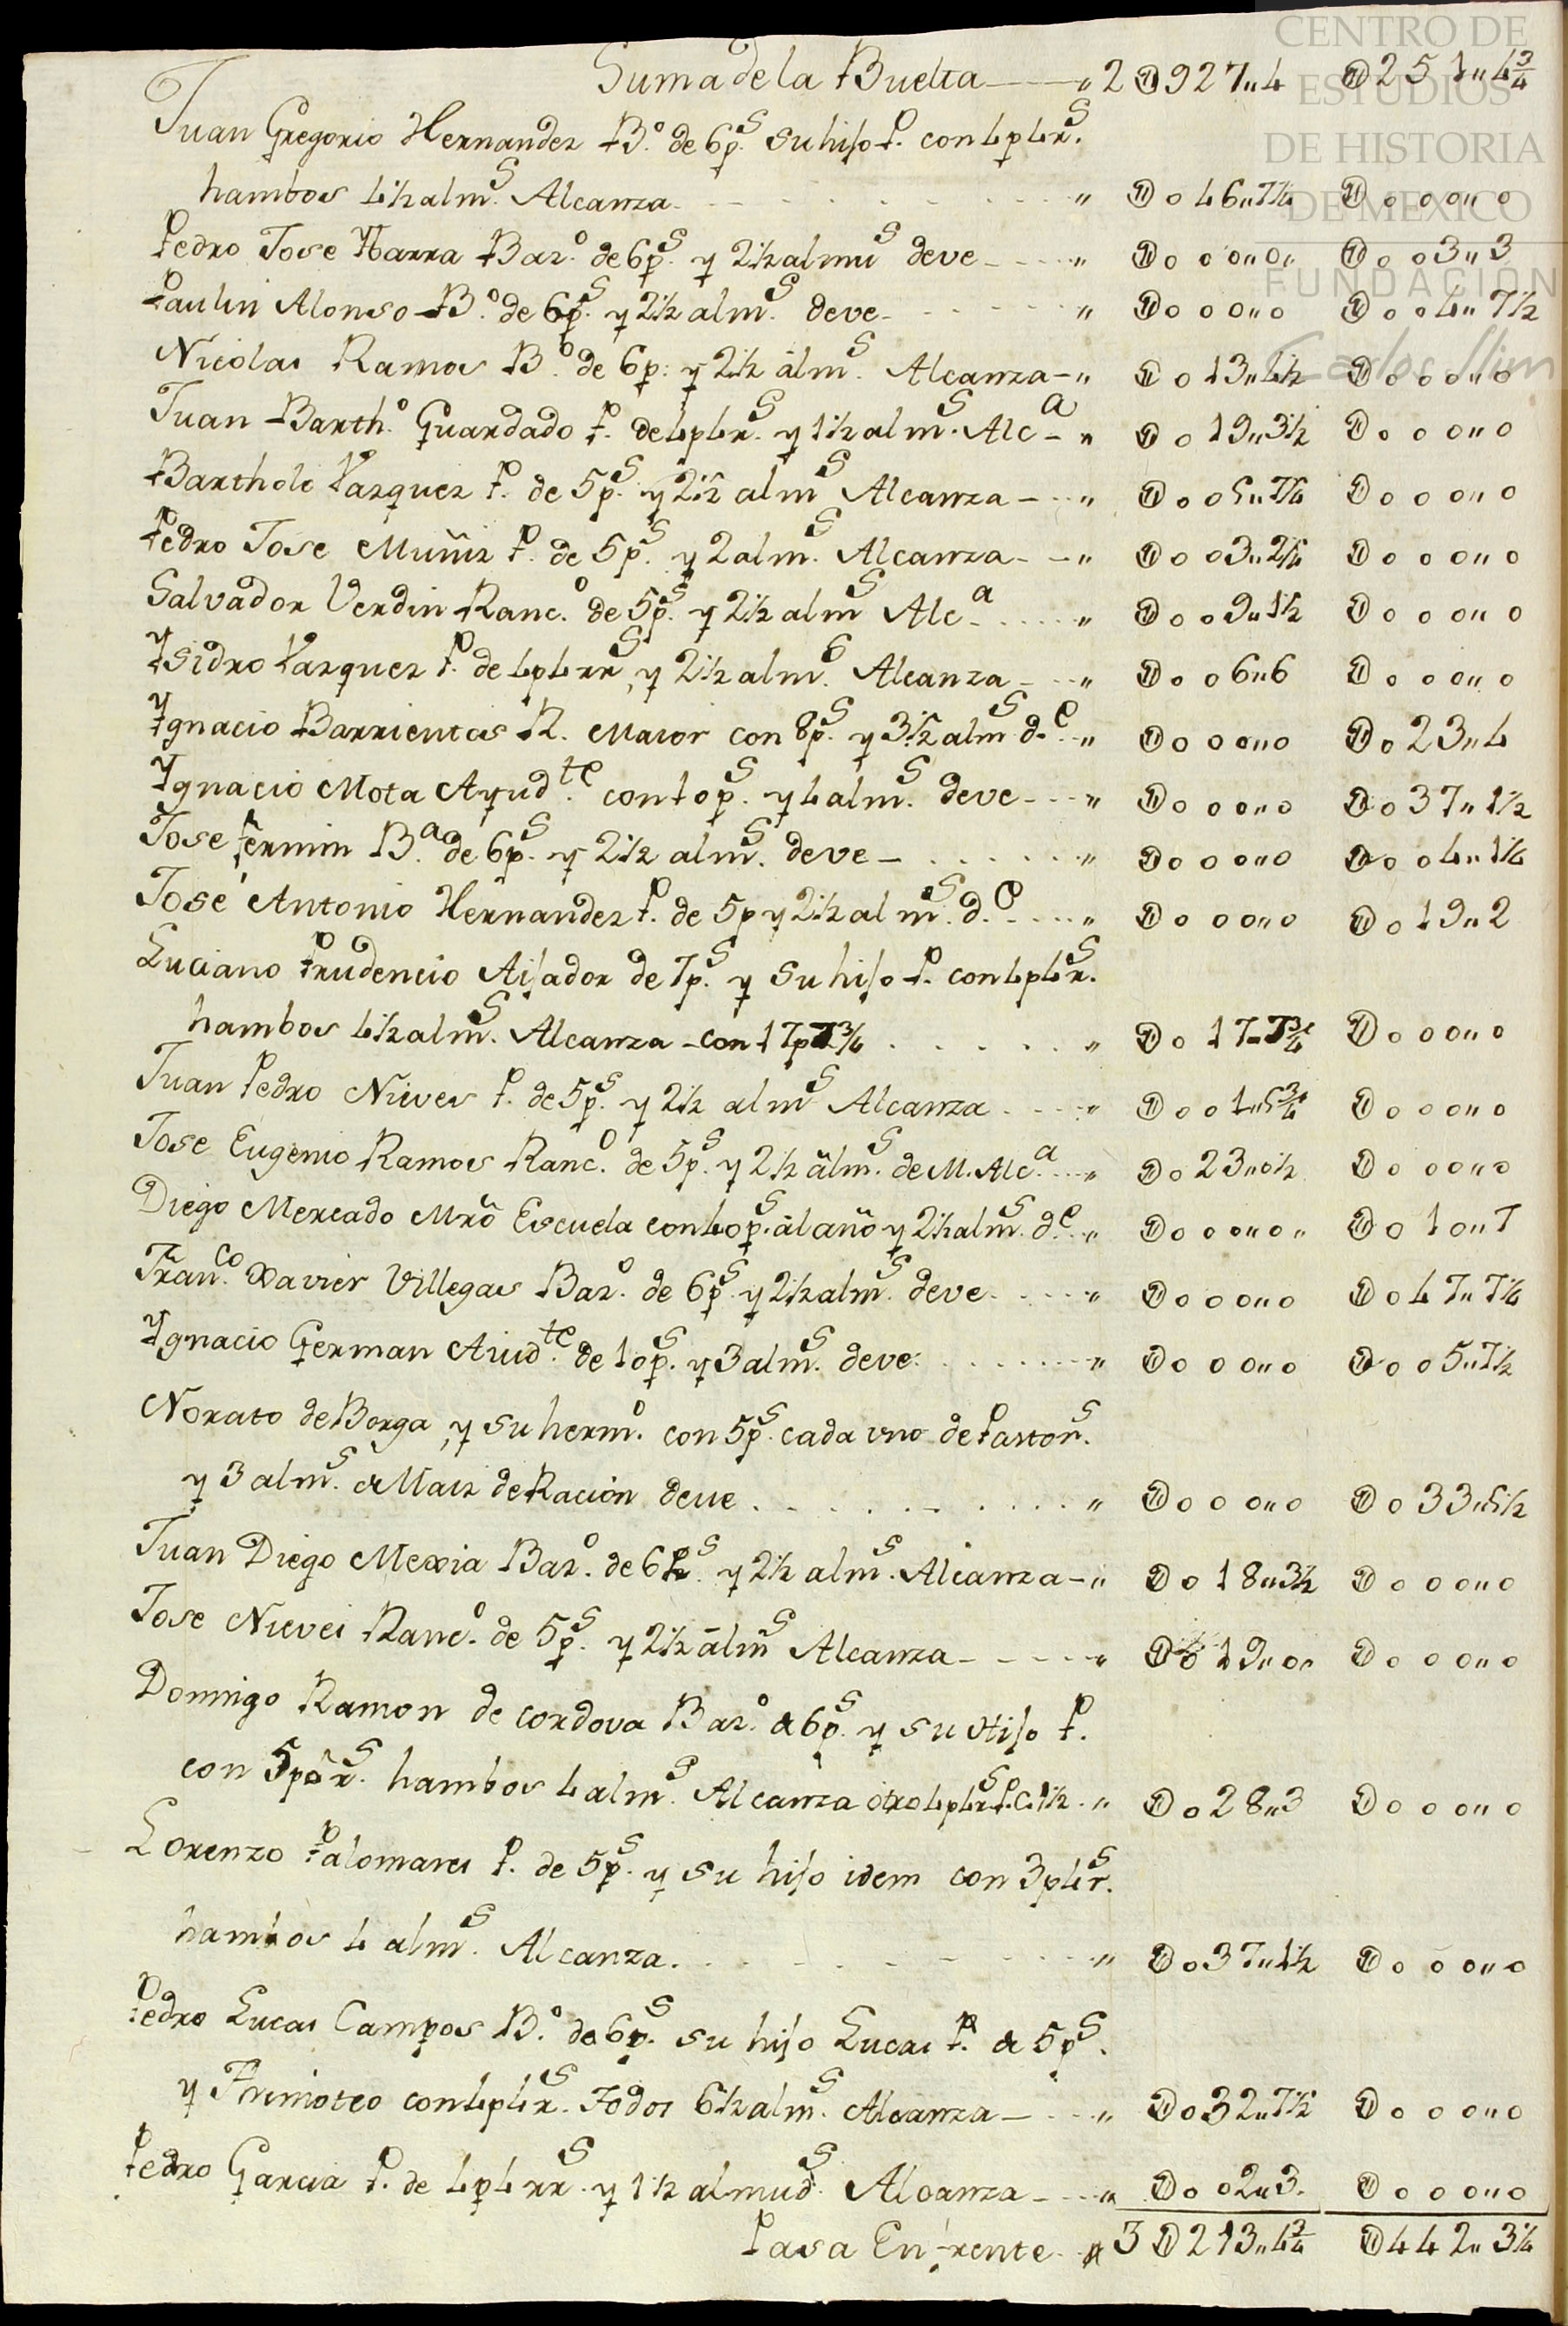 CENTRO DE
ESTUDIOS
DE HISTORIA
DE MEXICO
FUNDACIÓN
Carlos Slim
Suma de la Buelta — „ 2 U 927„4 U 251„4¾
Juan Gregorio Hernandez B.o de 6p.s su hijo P. con 4p4r.s
hambos 4½ alm.s Alcanza „ U o 46„7¼ U o o o„o
Pedro Jose Ybarra Baz.o de 6p.s y 2½ almu.s deve „ U o o o„o„ U o o3„3
Paulin Alonso B.o de 6p.s y 2½ alm.s deve „ U o o o„o U o o4„7½
Nicolas Ramos B.o de 6p: y 2½ alm.s Alcanza „ U o 13„4½ U o o o„o
Juan Barth.o Guardado P. de 4p4r.s y 1½ alm.s Alc.a „ U o 19„3½ U o o o„o
Bartholo Vazquez P. de 5p.s y 2½ alm.s Alcanza „ U o o5„7¼ U o o o„o
Pedro Jose Muñiz P. de 5p.s y 2 alm.s Alcanza „ U o o3„2¼ U o o o„o
Salvador Verdin Ranc.o de 5p.s y 2½ alm.s Alc.a „ U o o9„1½ U o o o„o
Ysidro Vazquez P. de 4p4rr.s y 2½ alm.s Alcanza „ U o o6„6 U o o o„o
Ygnacio Barrientos R. Maior con 8p.s y 3½ alm.s d.e „ U o o o„o U o 23„4
Ygnacio Mota Ayud.te con 10p.s y 4 alm.s deve „ U o o o„o U o 37„1½
Jose Fermin B.a de 6p.s y 2½ alm.s deve „ U o o o„o U o o4„1¼
Jose Antonio Hernandez P. de 5p y 2½ alm.s d.e „ U o o o„o U o 19„2
Luciano Prudencio Aijador de 7p.s y su hijo P. con 4p4r.s
hambos 4½ alm.s Alcanza con 17p7¾ „ U o 17„7¾ U o o o„o
Juan Pedro Nieves P. de 5p.s y 2½ alm.s Alcanza „ U o o1„5¾ U o o o„o
Jose Eugenio Ramos Ranc.o de 5p.s y 2½ alm.s de M. Alc.a „ U o 23„o½ U o o o„o
Diego Mercado Mrô Escuela con 40p.s al año y 2½ alm.s d.e „ U o o o„o„ U o 1o„7
Fran.co Xavier Villegas Baz.o de 6p.s y 2½ alm.s deve „ U o o o„o U o 47„7¼
Ygnacio German Aiud.te de 10p.s y 3 alm.s deve „ U o o o„o U o o5„7½
Norato de Borga, y su herm.o con 5p.s cada vno de Paston.s
y 3 alm.s de Maiz de Racion deue „ U o o o„o U o 33„5½
Juan Diego Mexia Baz.o de 6p.s y 2½ alm.s Alcanza „ U o 18„3½ U o o o„o
Jose Nieves Ranc.o de 5p.s y 2½ alm.s Alcanza „ U o 19„o„ U o o o„o
Domigo Ramon de cordova Baz.o de 6p.s y su Hijo P.
con 5por.s hambos 4 alm.s Alcanza otro 4p4r.s P. C. 1½ „ U o 28„3 U o o o„o
Lorenzo Palomares P. de 5p.s y su hijo idem con 3p4r.s
hambos 4 alm.s Alcanza „ U o 37„1½ U o o o„o
Pedro Lucas Campos B.o de 6p.s su hijo Lucas P. de 5p.s
y Trimoteo con 4p4r.s Todos 6½ alm.s Alcanza „ U o 32„7½ U o o o„o
Pedro Garcia P. de 4p4rr.s y 1½ almud.s Alcanza „ U o o2„3 U o o o„o
Pasa Enfrente „ 3 U 213„4¾ U 442„3¼